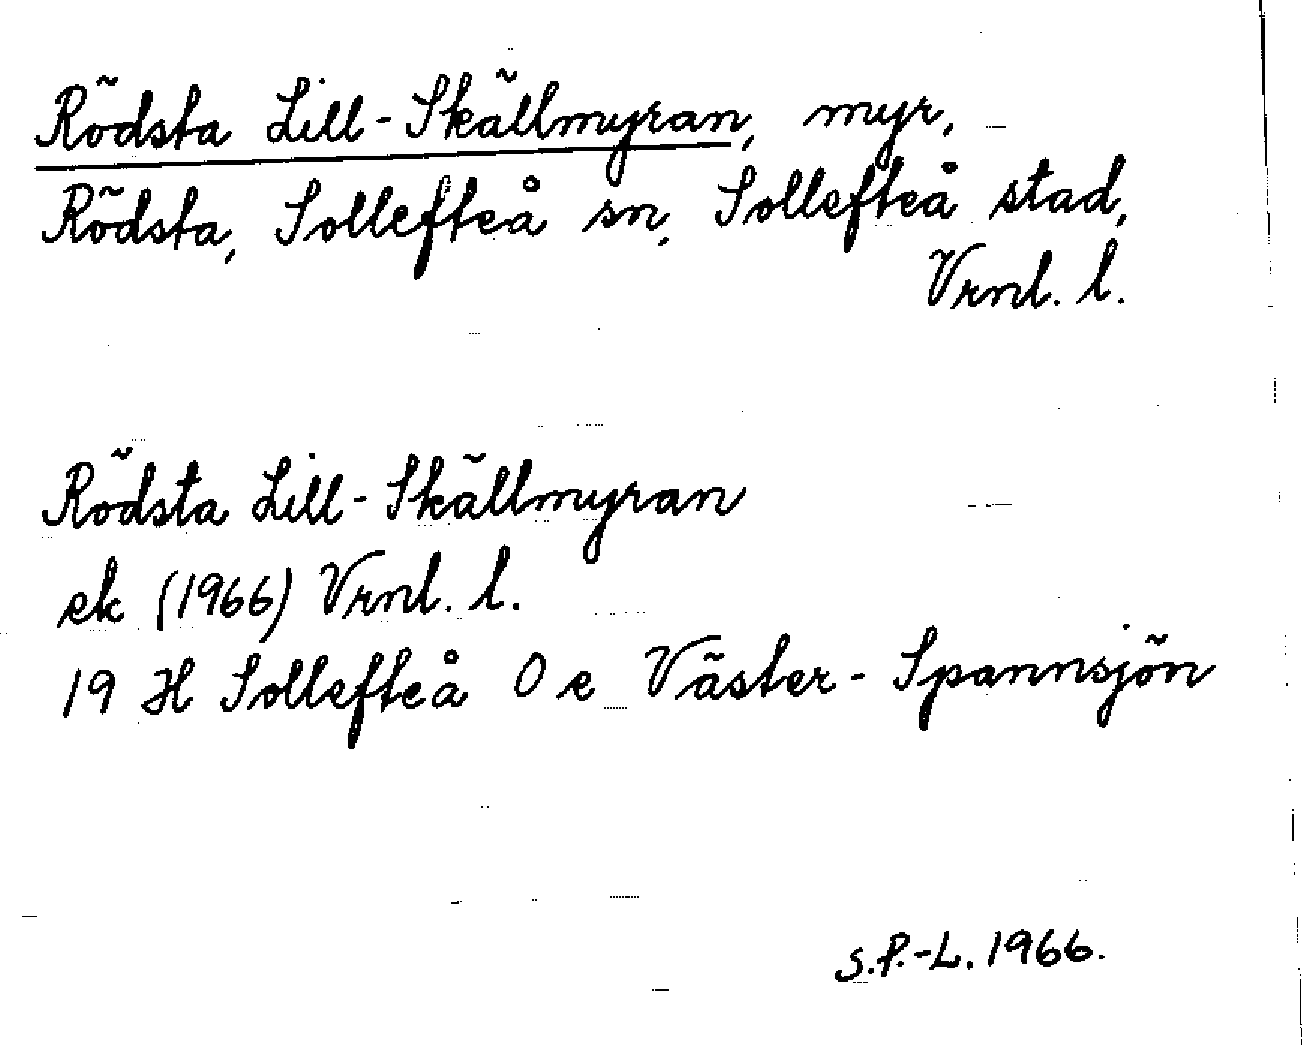 Rödsta Lill-Skällmyran, myr,
Rödsta, Sollefteå sn, Sollefteå stad,
Vrnl. l.
Rödsta Lill-Skällmyran
ek (1966) Vrnl. l.
19 H Sollefteå 0 e Väster-Spannsjön
S.P.-L. 1966.